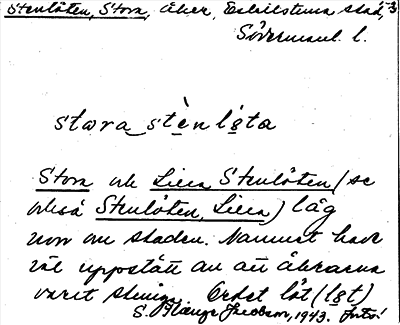 Stenlöten, Stora, åker, Eskilstuna stad,
Södermanl. l.
stora stènlöta
Stora och Lilla Stenlöten (se
också Stenlöten, Lilla) låg
norr om staden. Namnet har
väl uppstått av att åkrarna
varit steniga. Ordet löt (löt)
S. Jacobson, 1943.